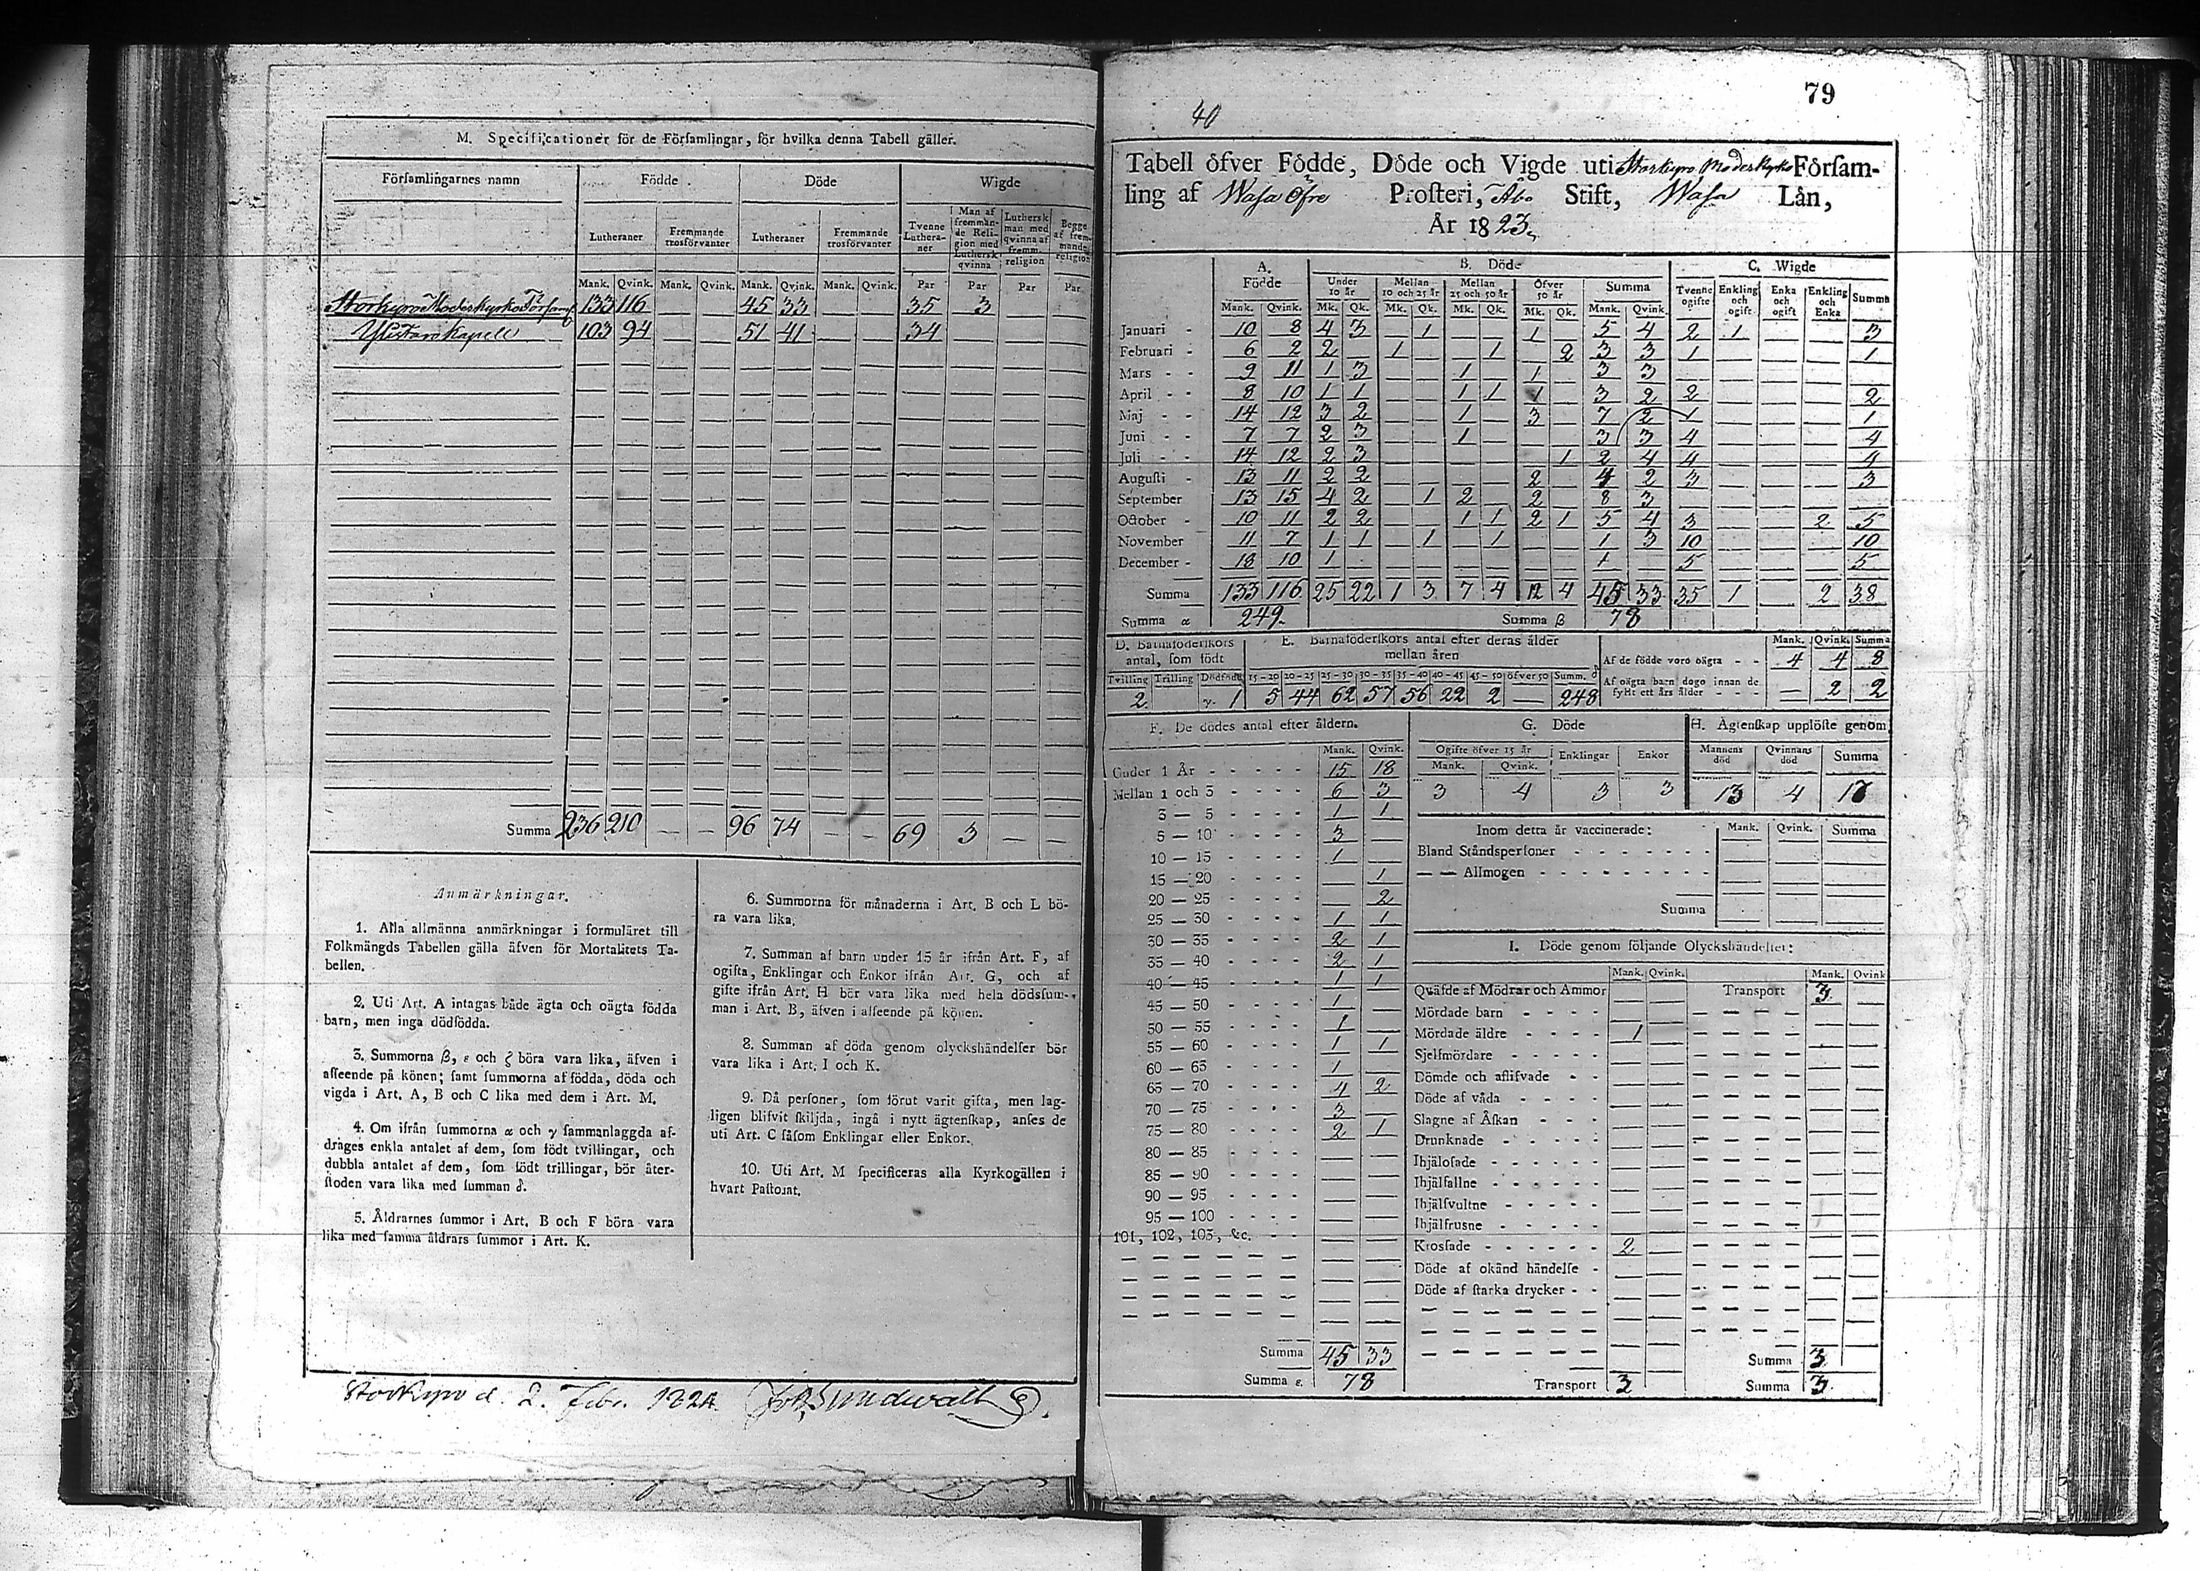 M. Specificationer för de Församlingar, för hvilka denna Tabell gäller.
Församlingarnes namn Födde Döde Wigde
Lutheraner Fremmande trosförvanter Lutheraner Fremmande trosförvanter Tvenne Lutheraner Man af fremmande Religion med Luthersk qvinna Luthersk man med qvinna af fremm. religion Begge af fremmande religion
Mank. Qvink. Mank. Qvink. Mank. Qvink. Mank. Qvink. Par Par Par Par
Storkyro Moderkyrko Församl. 133 116 45 33 35 3
Kapell 103 94 51 41 34
Summa 236 210 — — 96 74 — — 69 3 — —
Anmärkningar.
1. Alla allmänna anmärkningar i formuläret till
Folkmängds Tabellen gälla äfven för Mortalitets Ta-
bellen.
2. Uti Art. A intagas både ägta och oägta födda
barn, men inga dödfödda.
3. Summorna β, ε och ζ böra vara lika, äfven i
afseende på könen; samt summorna af födda, döda och
vigda i Art. A, B och C lika med dem i Art. M.
4. Om ifrån summorna α och γ sammanlaggda af-
drages enkla antalet af dem, som födt tvillingar, och
dubbla antalet af dem, som födt trillingar, bör åter-
stoden vara lika med summan δ.
5. Åldrarnes summor i Art. B och F böra vara
lika med samma åldrars summor i Art. K.
6. Summorna för månaderna i Art. B och L bö-
ra vara lika.
7. Summan af barn under 15 år ifrån Art. F, af
ogifta, Enklingar och Enkor ifrån Art. G, och af
gifte ifrån Art. H bör vara lika med hela dödssum-
man i Art. B, äfven i afseende på könen.
8. Summan af döda genom olyckshändelser bör
vara lika i Art. I och K.
9. Då personer, som förut varit gifta, men lag-
ligen blifvit skiljda, ingå i nytt ägtenskap, anses de
uti Art. C såsom Enklingar eller Enkor.
10. Uti Art. M specificeras alla Kyrkogällen i
hvart Pastorat.
Storkyro d. 2. Febr. 1824. Joh. Sundwall
79
40
Tabell öfver Födde, Döde och Vigde uti Storkyro Moderkyrko Församling
af Wasa Öfre Prosteri, Åbo Stift, Wasa Län,
År 1823.
A. Födde B. Döde C. Wigde
Under 10 år Mellan 10 och 25 år Mellan 25 och 50 år Öfver 50 år Summa Tvenne ogifte Enkling och ogift Enka och ogift Enkling och Enka Summa
Mank. Qvink. Mk. Qk. Mk. Qk. Mk. Qk. Mk. Qk. Mank. Qvink.
Januari 10 8 4 3 1 1 5 4 2 1 3
Februari 6 2 2 1 1 2 3 3 1 1
Mars 9 11 1 3 1 1 3 3
April 8 10 1 1 1 1 1 3 2 2 2
Maj 14 12 3 2 1 3 7 2 1 1
Juni 7 7 2 3 1 3 3 4 4
Juli 14 12 2 3 1 2 4 4 4
Augusti 13 11 2 2 2 4 2 3 3
September 13 15 4 2 1 2 2 8 3
October 10 11 2 2 1 1 2 1 5 4 3 2 5
November 11 7 1 1 1 1 1 3 10 10
December 18 10 1 1 5 5
Summa 133 116 25 22 1 3 7 4 12 4 45 33 35 1 2 38
Summa α 249. Summa β 78
D. Barnaföderskors antal, som födt
Tvilling Trilling Dödfödt
2 γ. 1
E. Barnaföderskors antal efter deras ålder mellan åren
15-20 20-25 25-30 30-35 35-40 40-45 45-50 öfver 50 Summ. δ
5 44 62 57 56 22 2 — 248
Mank. Qvink. Summa
Af de födde voro oägta 4 4 8
Af oägta barn dogo innan de fyllt ett års ålder — 2 2
F. De dödes antal efter åldern.
Mank. Qvink.
Under 1 År 15 18
Mellan 1 och 3 6 3
3 — 5 1 1
5 — 10 3
10 — 15 1
15 — 20 1
20 — 25 2
25 — 30 1 1
30 — 35 2 1
35 — 40 2 1
40 — 45 1 1
45 — 50 1
50 — 55 1
55 — 60 1 1
60 — 65 1
65 — 70 4 2
70 — 75 3
75 — 80 2 1
80 — 85
85 — 90
90 — 95
95 — 100
101, 102, 103, &c.
Summa 45 33
Summa ε. 78
G. Döde
Ogifte öfver 15 år Enklingar Enkor
Mank. Qvink.
3 4 3 3
H. Ägtenskap upplöste genom
Mannens död Qvinnans död Summa
13 4 17
Inom detta år vaccinerade: Mank. Qvink. Summa
Bland Ståndspersoner
— — Allmogen
Summa
I. Döde genom följande Olyckshändelser:
Mank. Qvink. Mank. Qvink
Qväfde af Mödrar och Ammor Transport 3
Mördade barn
Mördade äldre 1
Sjelfmördare
Dömde och aflifvade
Döde af våda
Slagne af Åskan
Drunknade
Ihjälosade
Ihjälfallne
Ihjälsvultne
Ihjälfrusne
Krossade 2
Döde af okänd händelse
Döde af starka drycker
Summa 3
Transport 3 Summa 3.